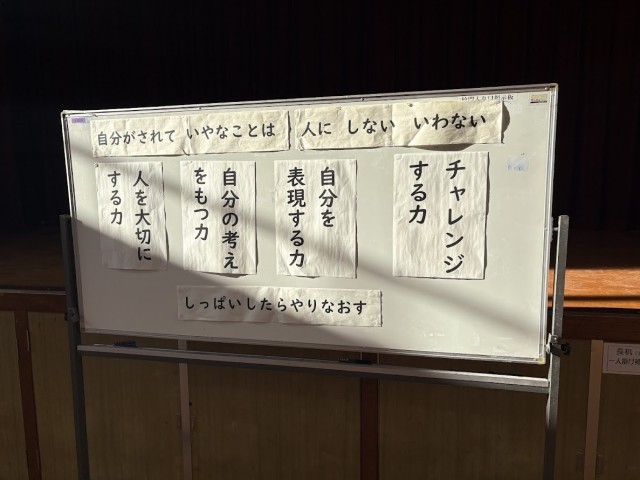 自分がされて いやなことは 人に しない いわない
人を大切に
する力
自分の考え
をもつ力
自分を
表現する力
チャレンジ
する力
しっぱいしたらやりなおす